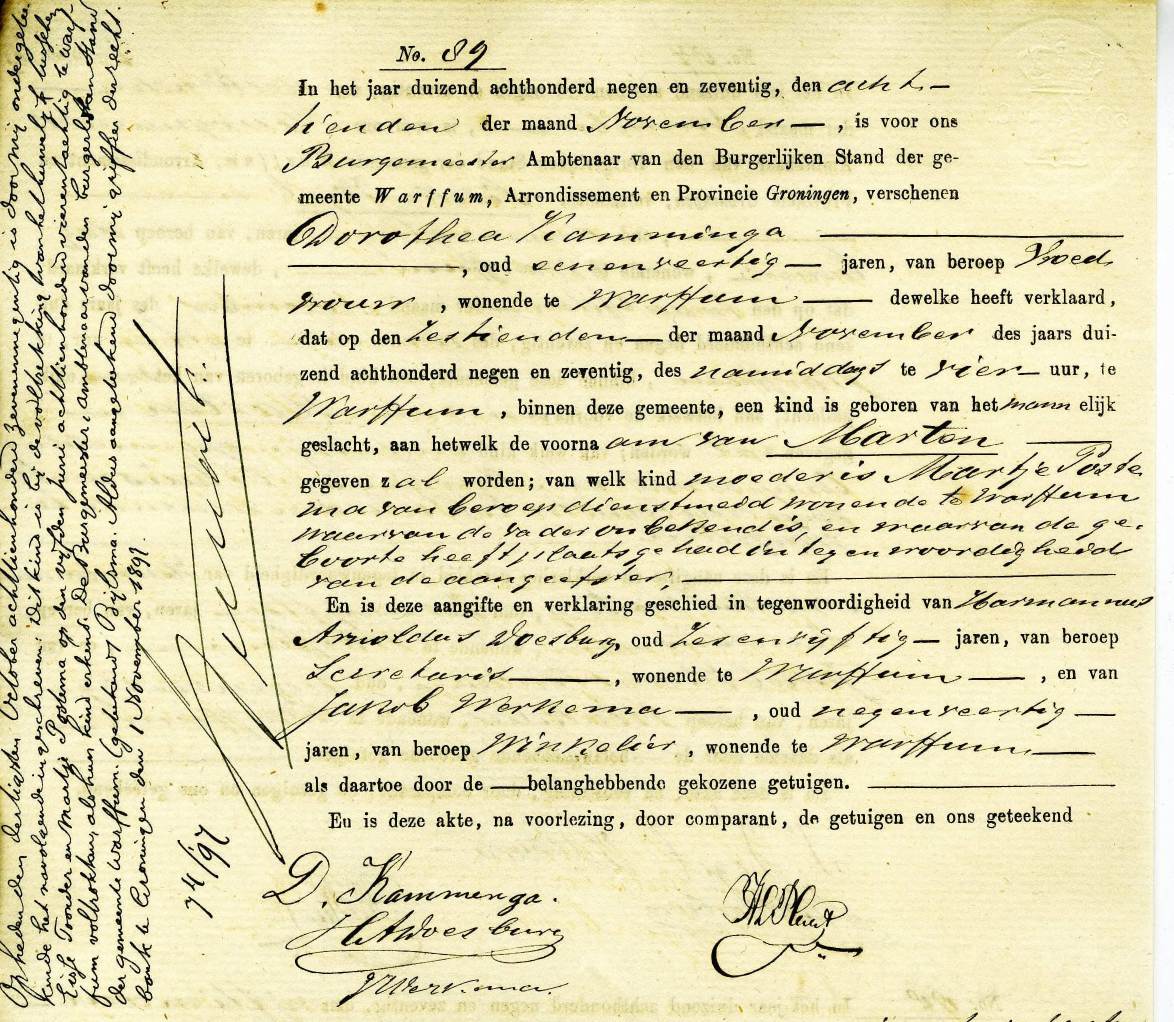 No. 89
In het jaar duizend achthonderd negen en zeventig, den acht-
tienden der maand November, is voor ons
Burgemeester Ambtenaar van den Burgerlijken Stand der ge-
meente Warffum, Arrondissement en Provincie Groningen, verschenen
Dorothea Kamminga
, oud eenenveertig jaren, van beroep Vroed
vrouw, wonende te Warffum dewelke heeft verklaard,
dat op den Zestienden der maand November des jaars dui-
zend achthonderd negen en zeventig, des namiddags te vier uur, te
Warffum, binnen deze gemeente, een kind is geboren van het mannelijk
geslacht, aan hetwelk de voornaam van Marten
gegeven zal worden; van welk kind moeder is Martje Poste
ma van beroep dienstmeid wonende te Warffum
waarvan de vader onbekend is, en waarvan de ge-
boorte heeft plaats gehad in tegenwoordigheid
van de aangeefster,
En is deze aangifte en verklaring geschied in tegenwoordigheid van Harmannus
Arnoldus Doesburg, oud Zesenvijftig jaren, van beroep
Secretaris, wonende te Warffum, en van
Jakob Werkema, oud negenveertig
jaren, van beroep Winkelier, wonende te Warffum
als daartoe door de belanghebbende gekozene getuigen.
En is deze akte, na voorlezing, door comparant, de getuigen en ons geteekend
D. Kammenga.
HADoesburg
JWerkema.
Op heden den dertigsten October achttienhonderd zevenennegentig is door mij ondergetee
kende het navolgende ingeschreven: Dit kind is bij de voltrekking van het huwelijk tusschen
Eisse Toonder en Martje Postema op den vijfden Juni achttienhonderd vierentachtig te Warf-
fum voltrokken, als hun kind erkend. De Burgemeester, Ambtenaar van den burgerlijken stand
der gemeente Warffum, (geteekend) Bijlsma. Aldus aangeteekend door mij griffier der recht
bank te Groningen den 1 November 1897.
74/97